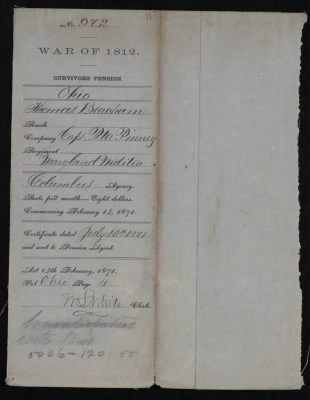 No. 942
WAR OF 1812.
SURVIVORS' PENSION
Ohio
Thomas Beacham
Rank
Company Capt. Peter Pinney
Regiment
Maryland Militia
Columbus Agency.
Rate per month—Eight dollars.
Commencing February 14, 1871.
Certificate dated July 10th 1871
and sent to Pension Agent.
Act 14th February, 1871.
Vol. Ohio Page 11
Clerk.
5006-120-55